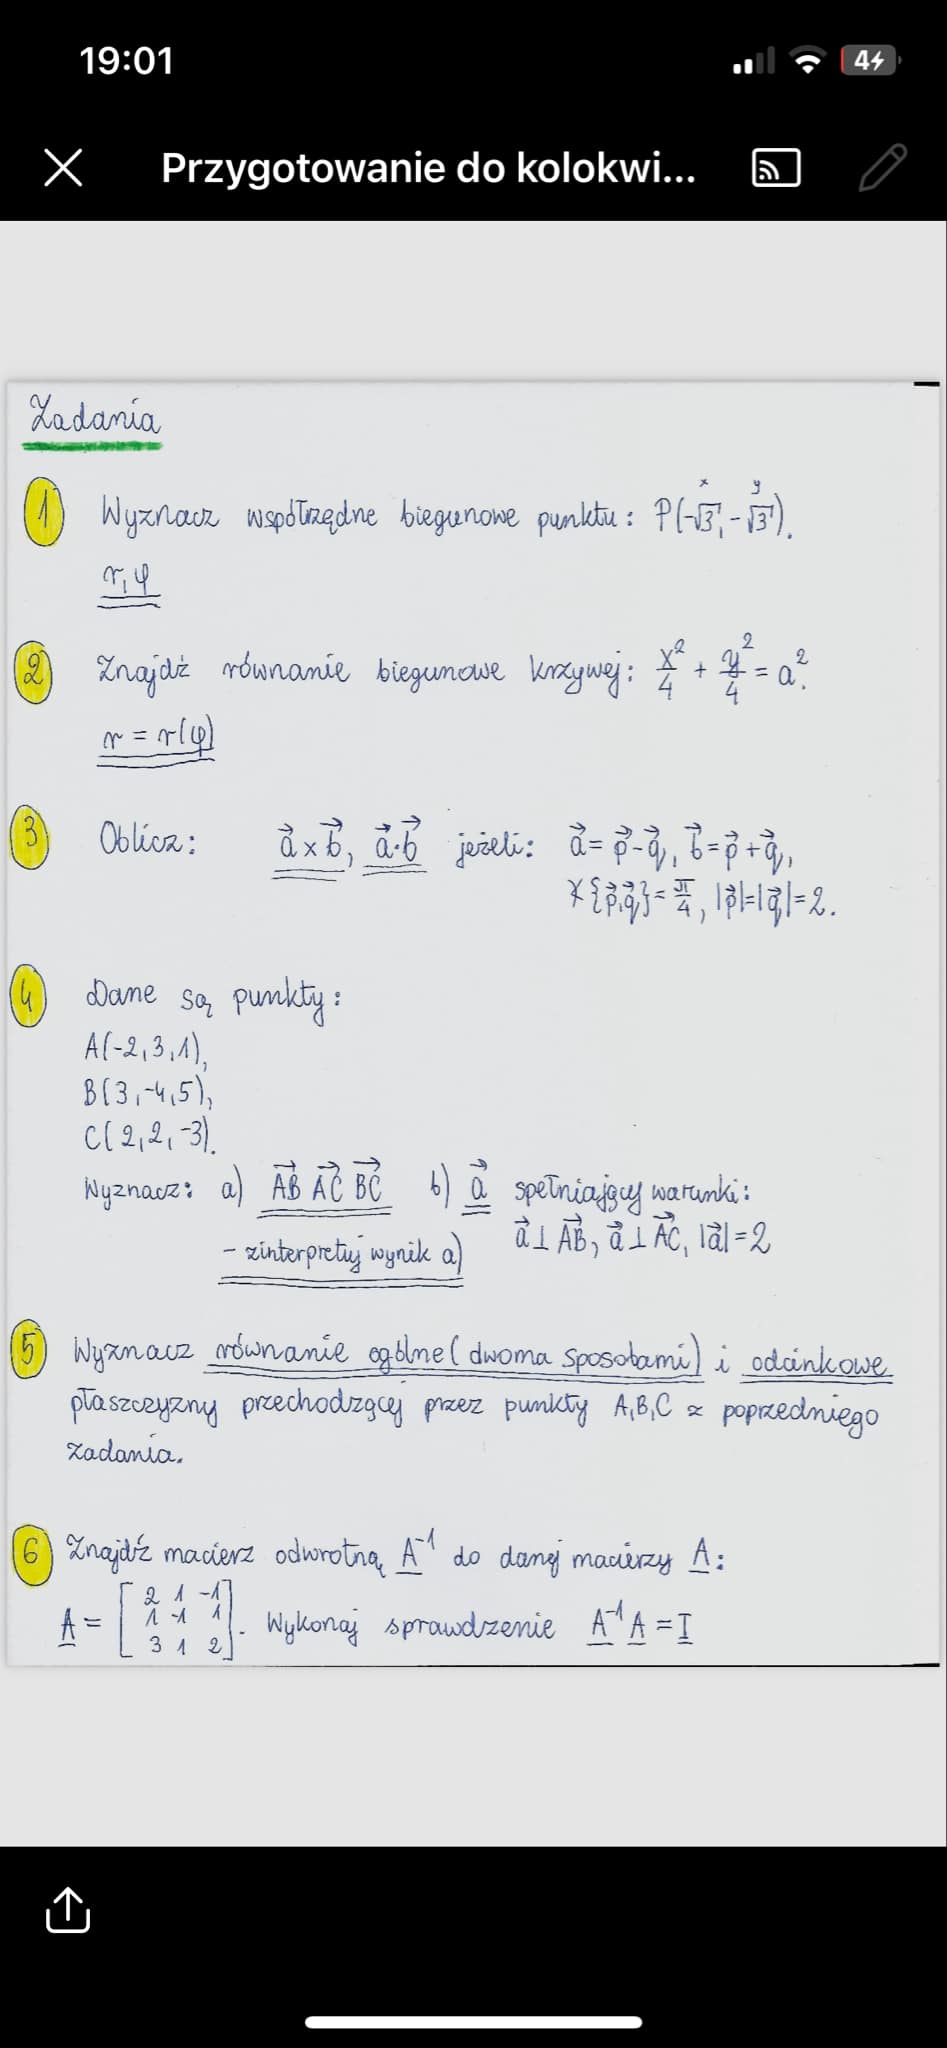 19:01
4
Przygotowanie do kolokwi...
Zadania
1 Wyznacz współrzędne biegunowe punktu: P(-√3, -√3).
x y
r, φ
2 Znajdź równanie biegunowe krzywej: x²/4 + y²/4 = a².
r = r(φ)
3 Oblicz: a⃗ × b⃗, a⃗·b⃗ jeżeli: a⃗ = p⃗ - q⃗, b⃗ = p⃗ + q⃗,
∢{p⃗,q⃗} = π/4, |p⃗|=|q⃗|=2.
4 Dane są punkty:
A(-2,3,1),
B(3,-4,5),
C(2,2,-3).
Wyznacz: a) AB⃗ AC⃗ BC⃗ b) a⃗ spełniający warunki:
- zinterpretuj wynik a) a⃗ ⊥ AB⃗, a⃗ ⊥ AC⃗, |a⃗| = 2
5 Wyznacz równanie ogólne (dwoma sposobami) i odcinkowe
płaszczyzny przechodzącej przez punkty A,B,C z poprzedniego
zadania.
6 Znajdź macierz odwrotną A⁻¹ do danej macierzy A:
A = [2 1 -1
1 -1 1
3 1 2]. Wykonaj sprawdzenie A⁻¹ A = I